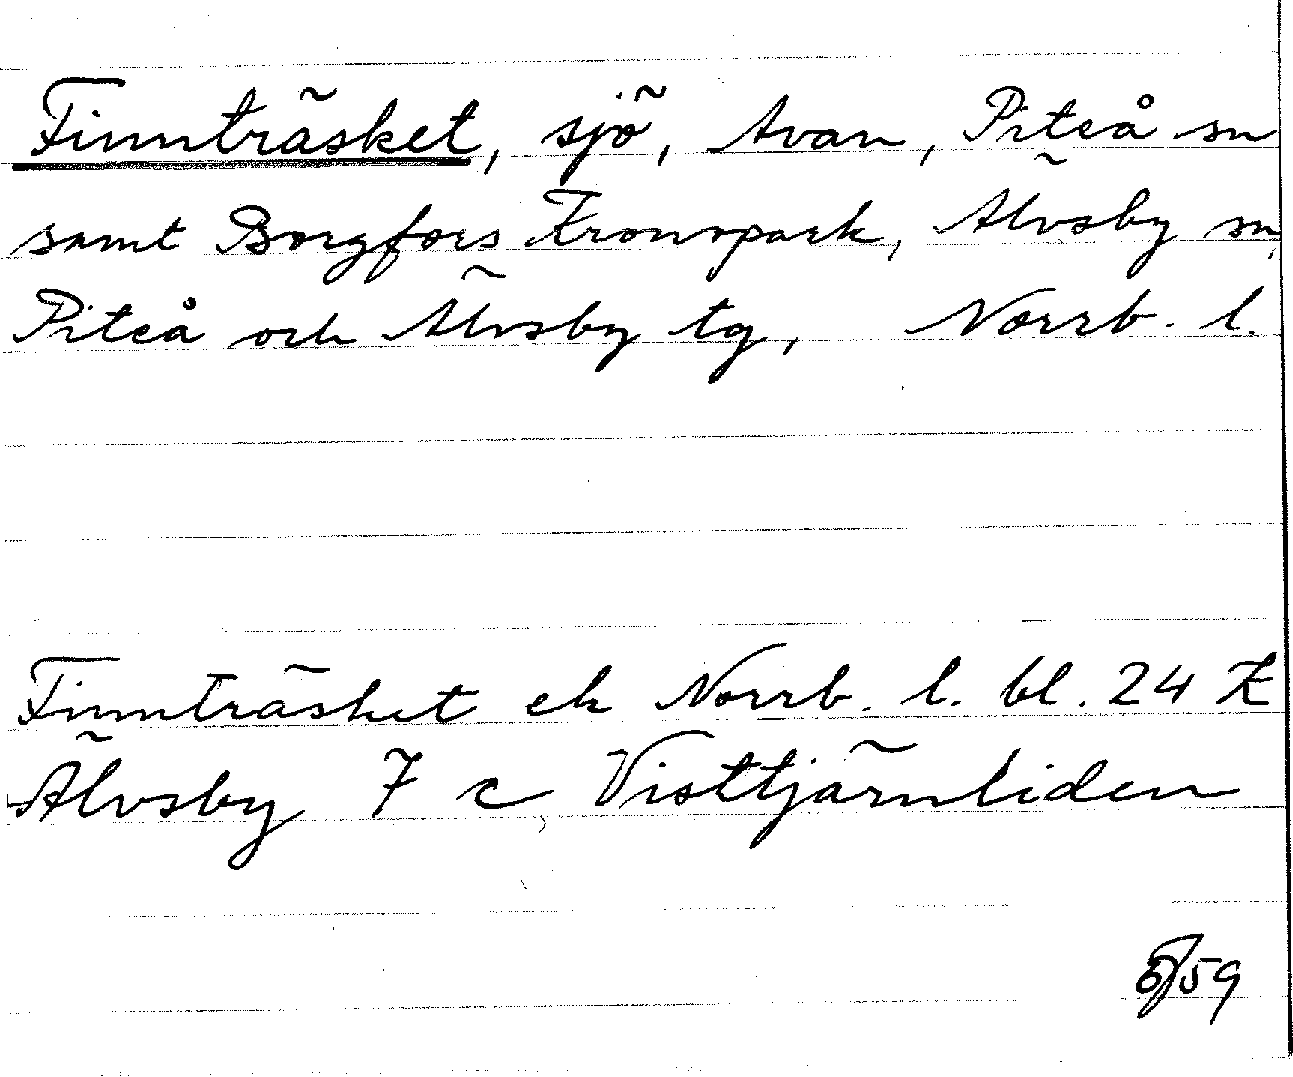 Finnträsket, sjö, Avan, Piteå sn
samt Borgfors Kronopark, Älvsby sn,
Piteå och Älvsby tg, Norrb. l.
Finnträsket ek Norrb. l. bl. 24 K
Älvsby 7 c Visttjärnliden
/59